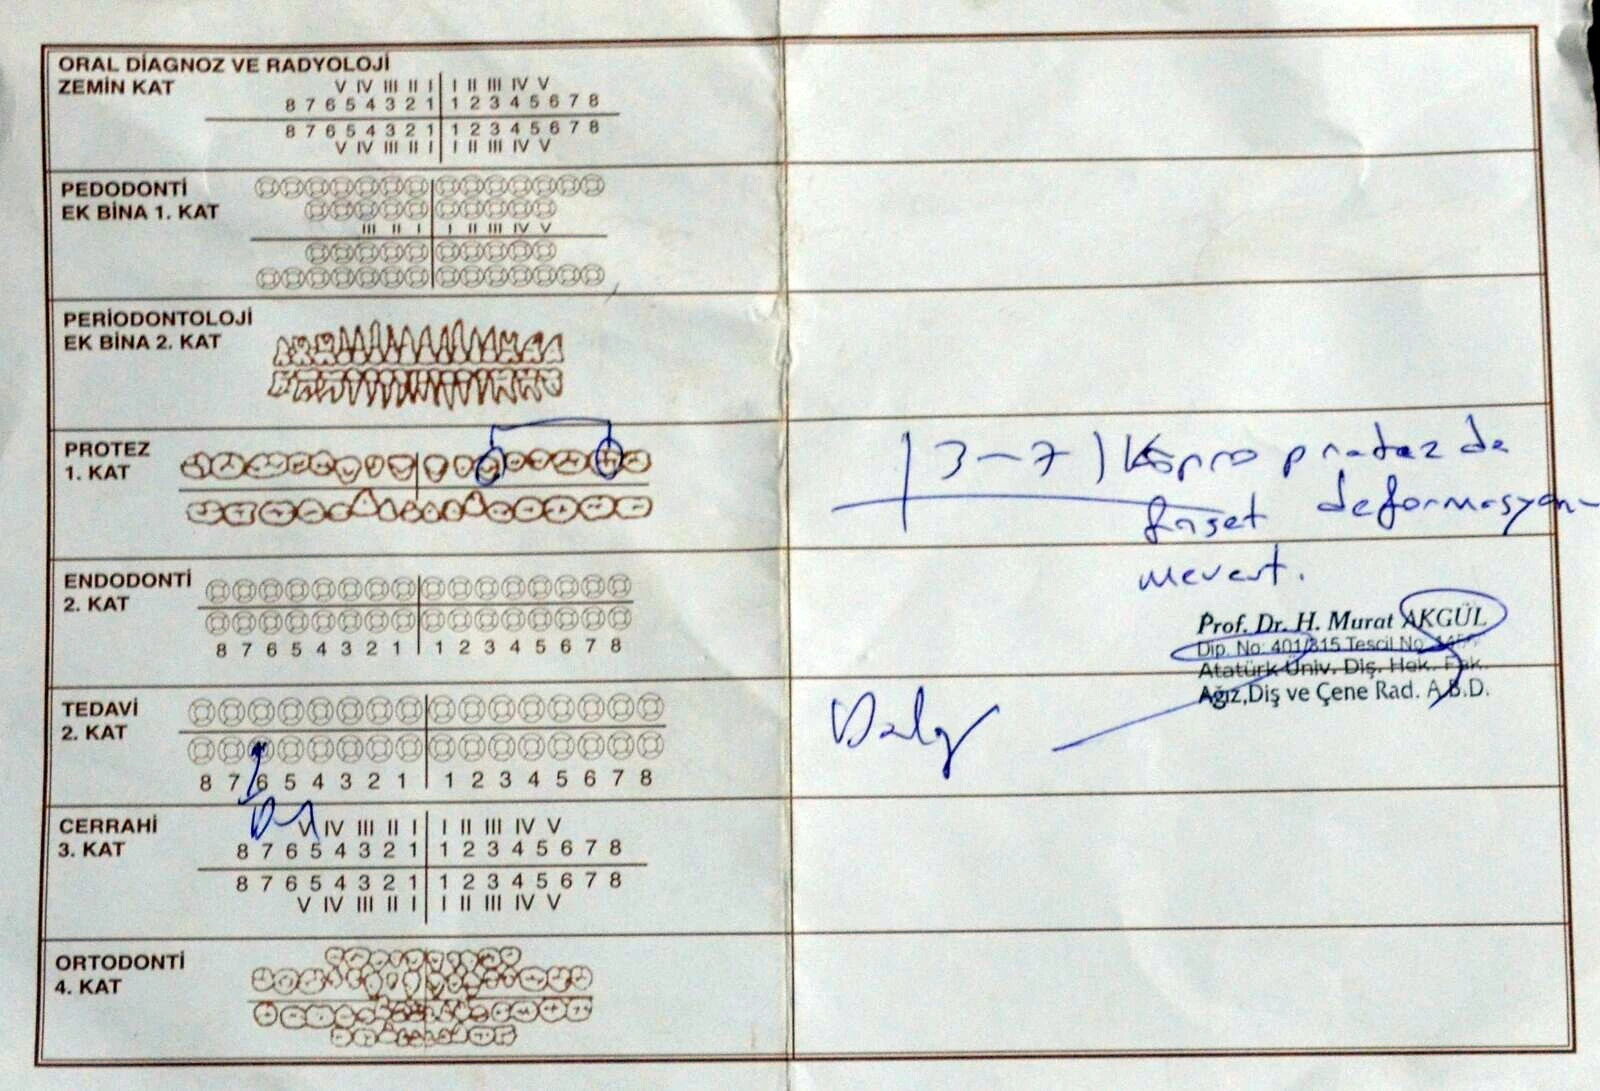 ORAL DİAGNOZ VE RADYOLOJİ
ZEMİN KAT
V IV III II I I II III IV V
8 7 6 5 4 3 2 1 1 2 3 4 5 6 7 8
8 7 6 5 4 3 2 1 1 2 3 4 5 6 7 8
V IV III II I I II III IV V
PEDODONTİ
EK BİNA 1. KAT
III II I I II III IV V
PERİODONTOLOJİ
EK BİNA 2. KAT
PROTEZ
1. KAT
3-7) Köprü protezde
faset deformasyon
mevcut.
ENDODONTİ
2. KAT
8 7 6 5 4 3 2 1 1 2 3 4 5 6 7 8
Prof. Dr. H. Murat AKGÜL
Dip. No: 401/315 Tescil No
Atatürk Üniv. Diş. Hek. Fak.
Ağız,Diş ve Çene Rad. A.B.D.
TEDAVİ
2. KAT
8 7 6 5 4 3 2 1 1 2 3 4 5 6 7 8
CERRAHİ
3. KAT
V IV III II I I II III IV V
8 7 6 5 4 3 2 1 1 2 3 4 5 6 7 8
8 7 6 5 4 3 2 1 1 2 3 4 5 6 7 8
V IV III II I I II III IV V
ORTODONTİ
4. KAT